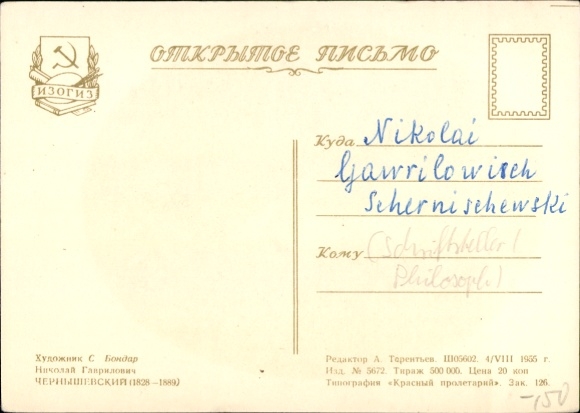 ИЗОГИЗ
ОТКРЫТОЕ ПИСЬМО
Куда Nikolai
Gawrilowisch
Schernischewski
Кому (Schriftsteller/
Philosoph)
Художник С. Бондар
Николай Гаврилович
ЧЕРНЫШЕВСКИЙ (1828–1889)
Редактор А. Тарентьев. Ш05602. 4/VIII 1955 г.
Изд. № 5672. Тираж 500 000. Цена 20 коп
Типография «Красный пролетарий». Зак. 126.
-150